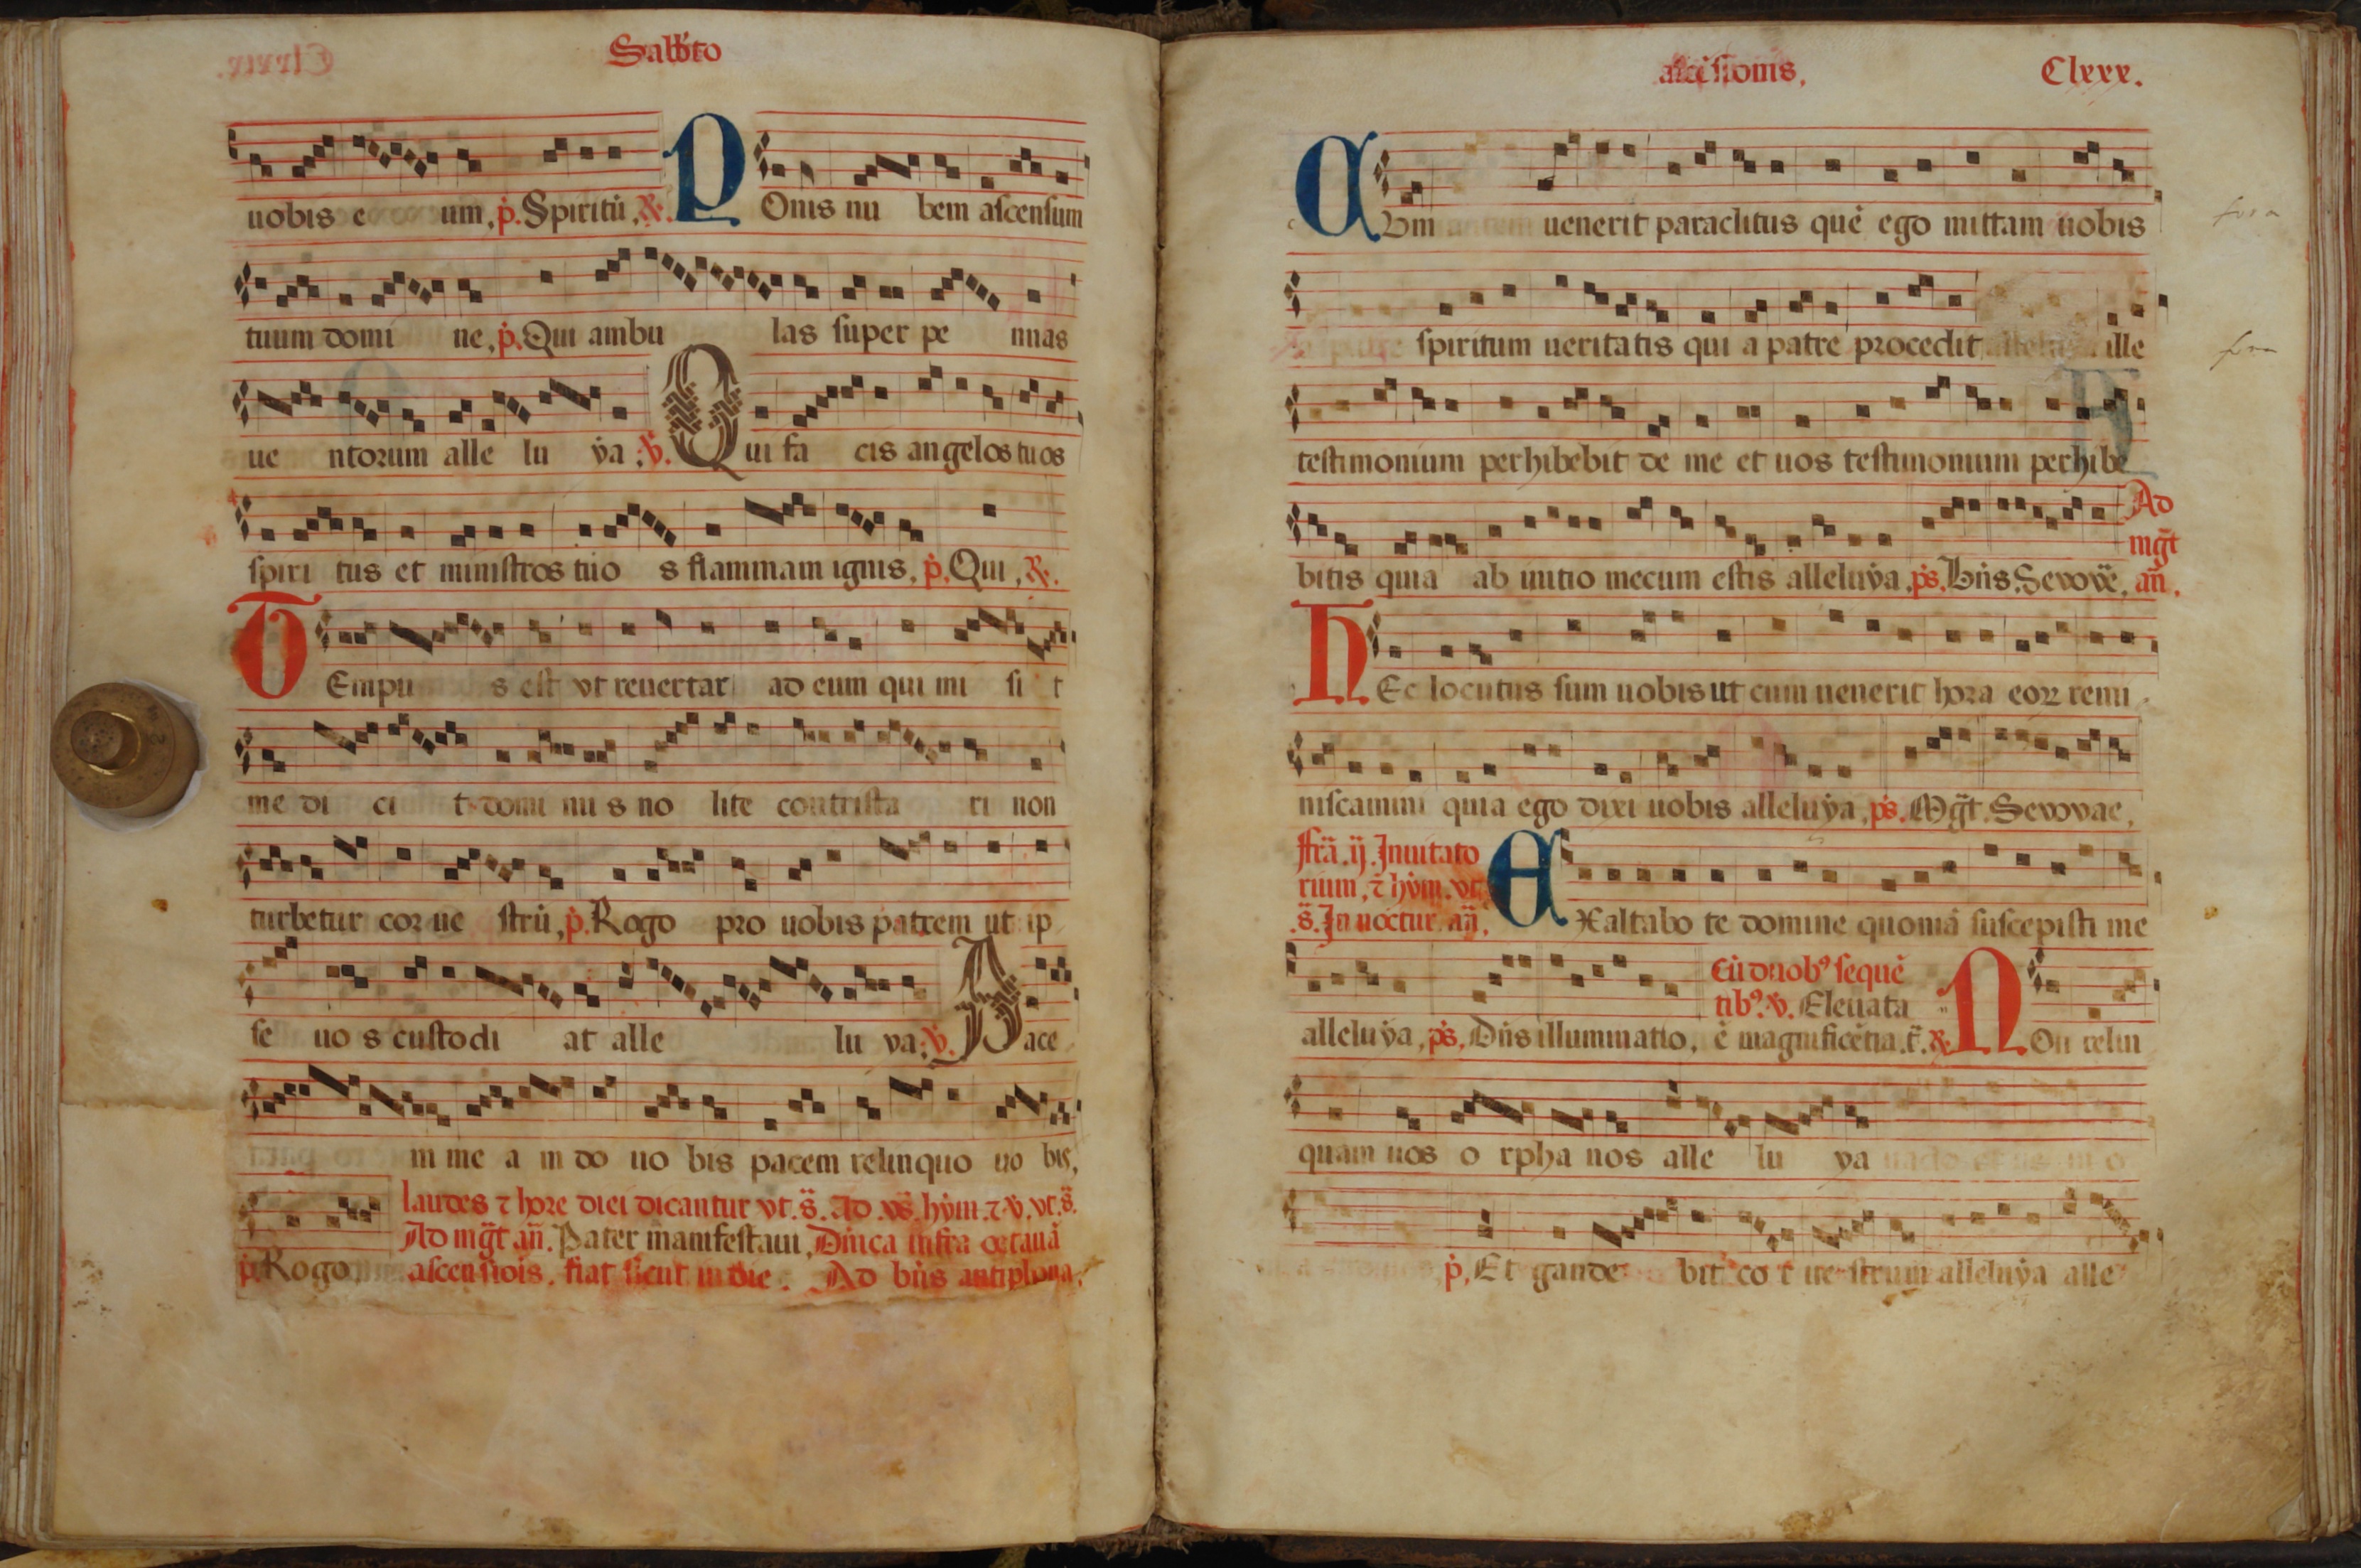 Sabb̄to
uobis e um, p̄. Spiritū, ℟. POnis nu bem ascensum
tuum domi ne, p̄. Qui ambu las super pe nnas
ue ntorum alle lu ẏa : ℣. Qui fa cis angelos tuos
spiri tus et ministros tuo s flammam ignis, p̄. Qui, ℟.
TEmpu s est vt reuertar ad eum qui mi si t
me di ci t domi nu s no lite contrista ri non
turbetur cor ue strū, p̄. Rogo pro uobis patrem ut ip
se uo s custodi at alle lu ya : ℣. Pace
m me a m do uo bis pacem relinquo uo bis,
laudes ⁊ hore diei dicantur vt. s̄. Ad vs̄. hẏm. ⁊ ℣. vt. s̄.
Ad mḡt an̄. Pater manifestaui, Dn̄ica infra octauā
p̄. Rogo ascensiois. fiat sicut in die. Ad bn̄s antiphona.
ascēsionis. Clxxx.
CVm uenerit paraclitus quē ego mittam uobis
spiritum ueritatis qui a patre procedit ille
testimonium perhibebit de me et uos testimonium perhibe
Ad
mḡt
bitis quia ab initio mecum estis alleluẏa, ps̄. Bn̄s. Sevovē. an̄.
HEc locutus sum uobis ut cum uenerit hora eoꝝ remi
niscamini quia ego dixi uobis alleluẏa, ps̄. Mḡt. Sevovae,
fr̄a. ij. Inuitato
rium, ⁊ hẏm. vt
s̄. In noctur. an̄. EXaltabo te domine quoniā suscepisti me
cū duobꝰ sequē
tibꝰ. ℣. Eleuata
alleluẏa, ps̄. Dn̄s illuminatio, ē magnificētia. t̄. ℟. NOn relin
quam uos o rpha nos alle lu ya
p̄. Et gaude bit co r ue strum alleluẏa alle